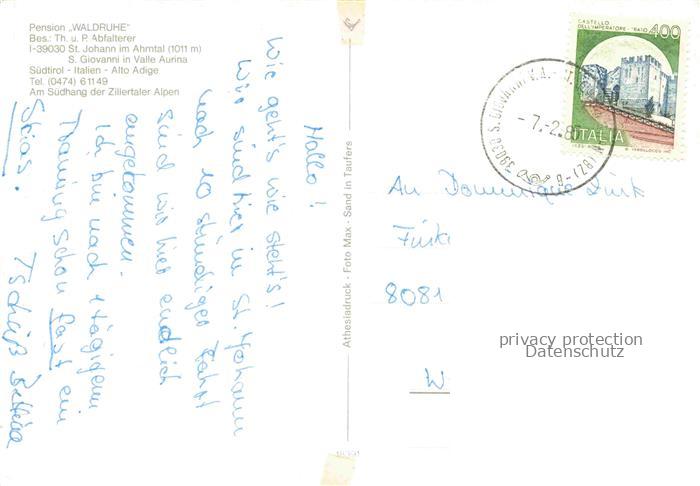 Pension „WALDRUHE"
Bes.: Th. u. P. Abfalterer
I-39030 St. Johann im Ahrntal (1011 m)
S. Giovanni in Valle Aurina
Südtirol - Italien - Alto Adige
Tel. (0474) 61149
Am Südhang der Zillertaler Alpen
Hallo!
Wie geht's wie steht's!
Wir sind hier in St. Johann
nach 10 stündiger Fahrt
sind wir hier endlich
angekommen.
Ich bin nach 4 tägigem
Training schon fast ein
Skias.
Tschüß Bettina
Athesiadruck · Foto Max · Sand in Taufers
CASTELLO
DELL'IMPERATORE
400
ITALIA
39030 S. GIOVANNI V.A.
-7.-2.8
(BZ)
An Dominique
8081
W
privacy protection
Datenschutz